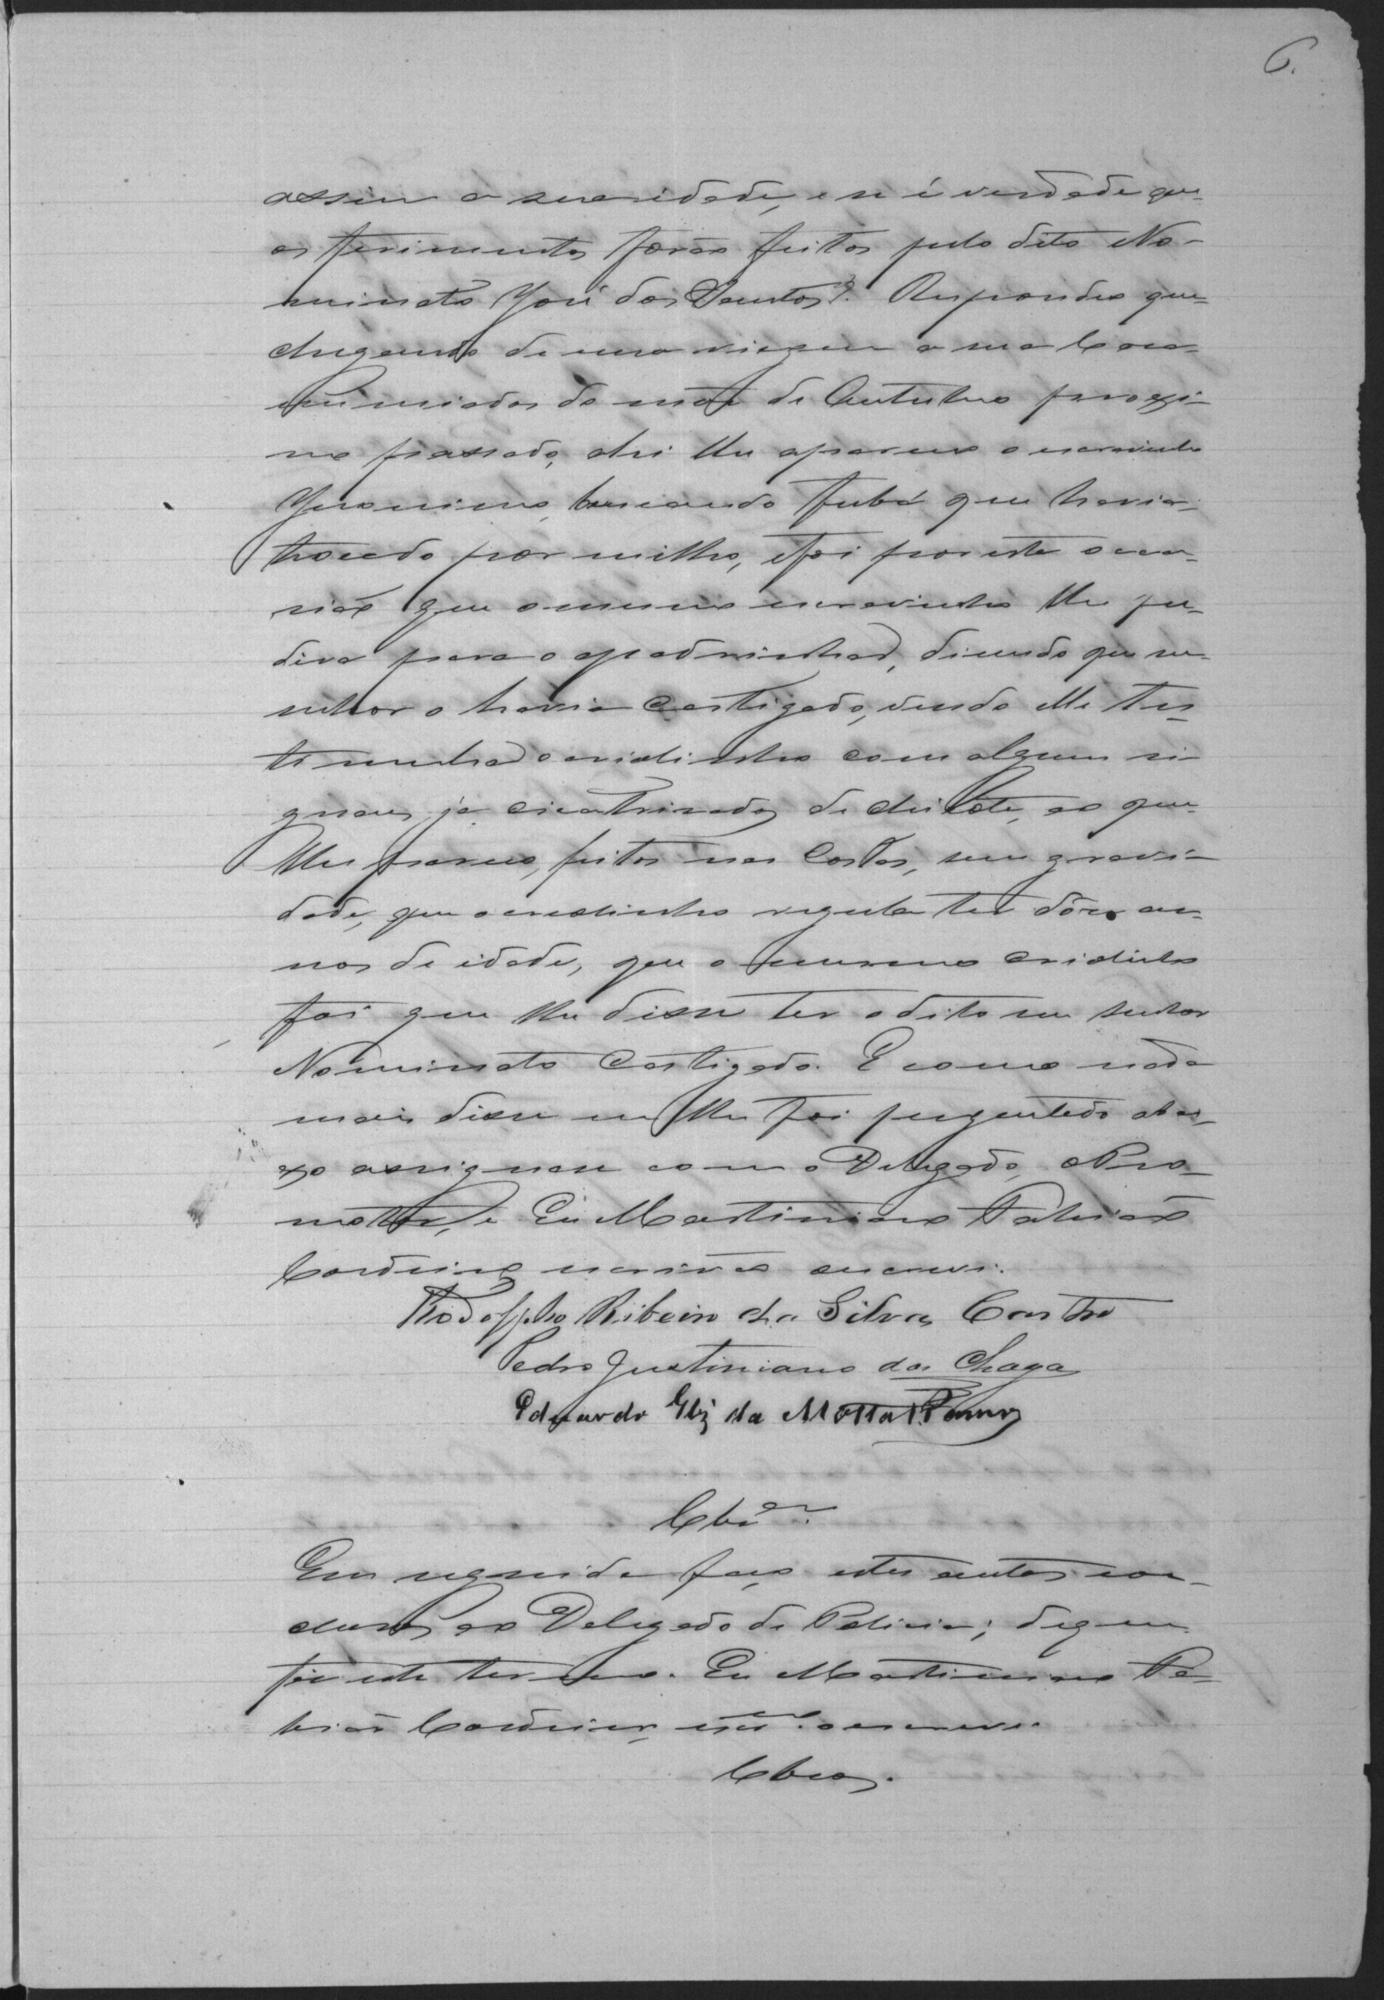 6.
assim a sua idade, e se é verdade que
os ferimentos forão feitos pelo dito No-
minato José dos Santos? Respondeo que
chegando de uma viagem a sua Casa
em meiados do mez de Outubro proxi-
mo passado, ahi lhe apareceo o escravinho
Jeronimo, buscando fubá que havia
trocado por milho, e foi por esta occa-
sião que o mesmo escravinho lhe pe-
dira para o apadrinhar, dizendo que se-
nhor o havia castigado, vendo elle tes-
temunha o creolinho com alguns si-
gnaes já cicatrizados de chicote, ao que
lhe pareceo, feitos nas Costas, sem gravi-
dade, que o creolinho regula ter dôze an-
nos de idade, que o mesmo creolinho
foi que lhe disse ter o dito seu senhor
Nominato Castigado. E como nada
mais disse nem lhe foi perguntado abai-
xo assignase com o Delegado, e Pro-
motor, e Eu Martiniano Patricio
Cordeiro, escrivão escrevi.
Rodolpho Ribeiro da Silva Castro
Pedro Justiniano das Chagas
Eduardo da Motta Ramos
Clsam.
Em seguida faço estes autos con-
clusos ao Delegado de Policia; do que
fiz este termo. Eu Martiniano Pa-
tricio Cordeiro, escam. o escrevi.
Clsos.